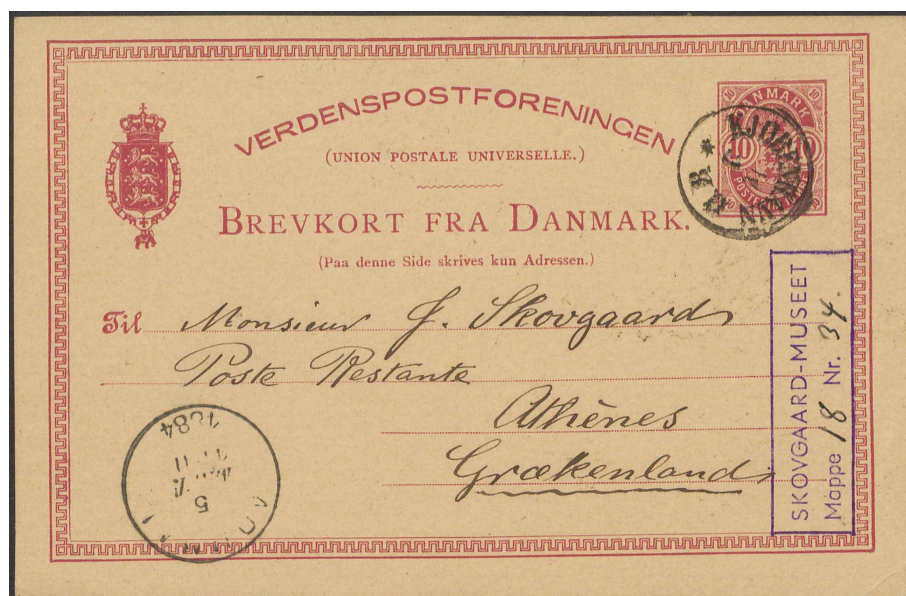 VERDENSPOSTFORENINGEN
(UNION POSTALE UNIVERSELLE.)
BREVKORT FRA DANMARK.
(Paa denne Side skrives kun Adressen.)
DANMARK
10 10
KJØBENHAVN
Til Monsieur J. Skovgaard
Poste Restante
Athènes
Grækenland
1884
5
SKOVGAARD-MUSEET
Mappe 18 Nr. 34.